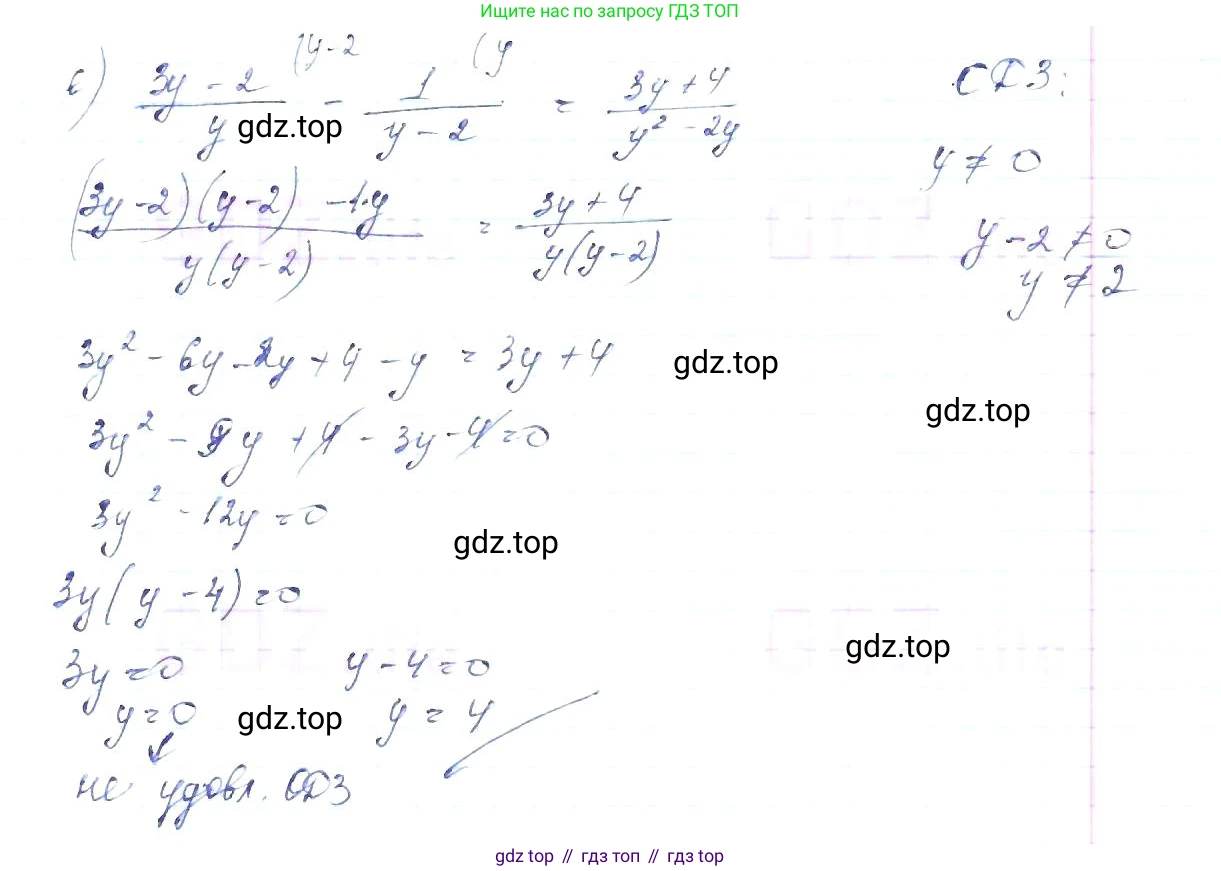 Ищите нас по запросу ГДЗ ТОП
в) (3y - 2)/y (y-2 - 1/(y - 2) (y = (3y + 4)/(y² - 2y) ОДЗ:
gdz.top
y ≠ 0
((3y - 2)(y - 2) - 1·y)/(y(y - 2)) = (3y + 4)/(y(y - 2))
y - 2 ≠ 0
y ≠ 2
3y² - 6y - 2y + 4 - y = 3y + 4
gdz.top
gdz.top
3y² - 9y + 4 - 3y - 4 = 0
3y² - 12y = 0
gdz.top
3y(y - 4) = 0
gdz.top
3y = 0 y - 4 = 0
y = 0 gdz.top y = 4
не удовл. ОДЗ
gdz top // гдз топ // gdz top